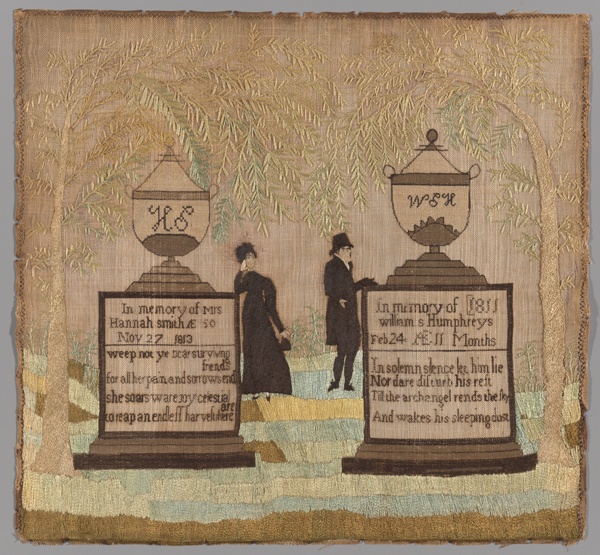 HS
In memory of Mrs
Hannah smith Æ 50
Nov 27 1813
weep not ye Dear surviving
frends
for all her pain and sorrows end
she soars
are
to reap an endless harvest here
WSH
In memory of 1811
william s Humphreys
Feb 24 Æ 11 Months
In solemn silence let him lie
Nor dare disturb his rest
Till the archengel rends the sky
And wakes his sleeping dust